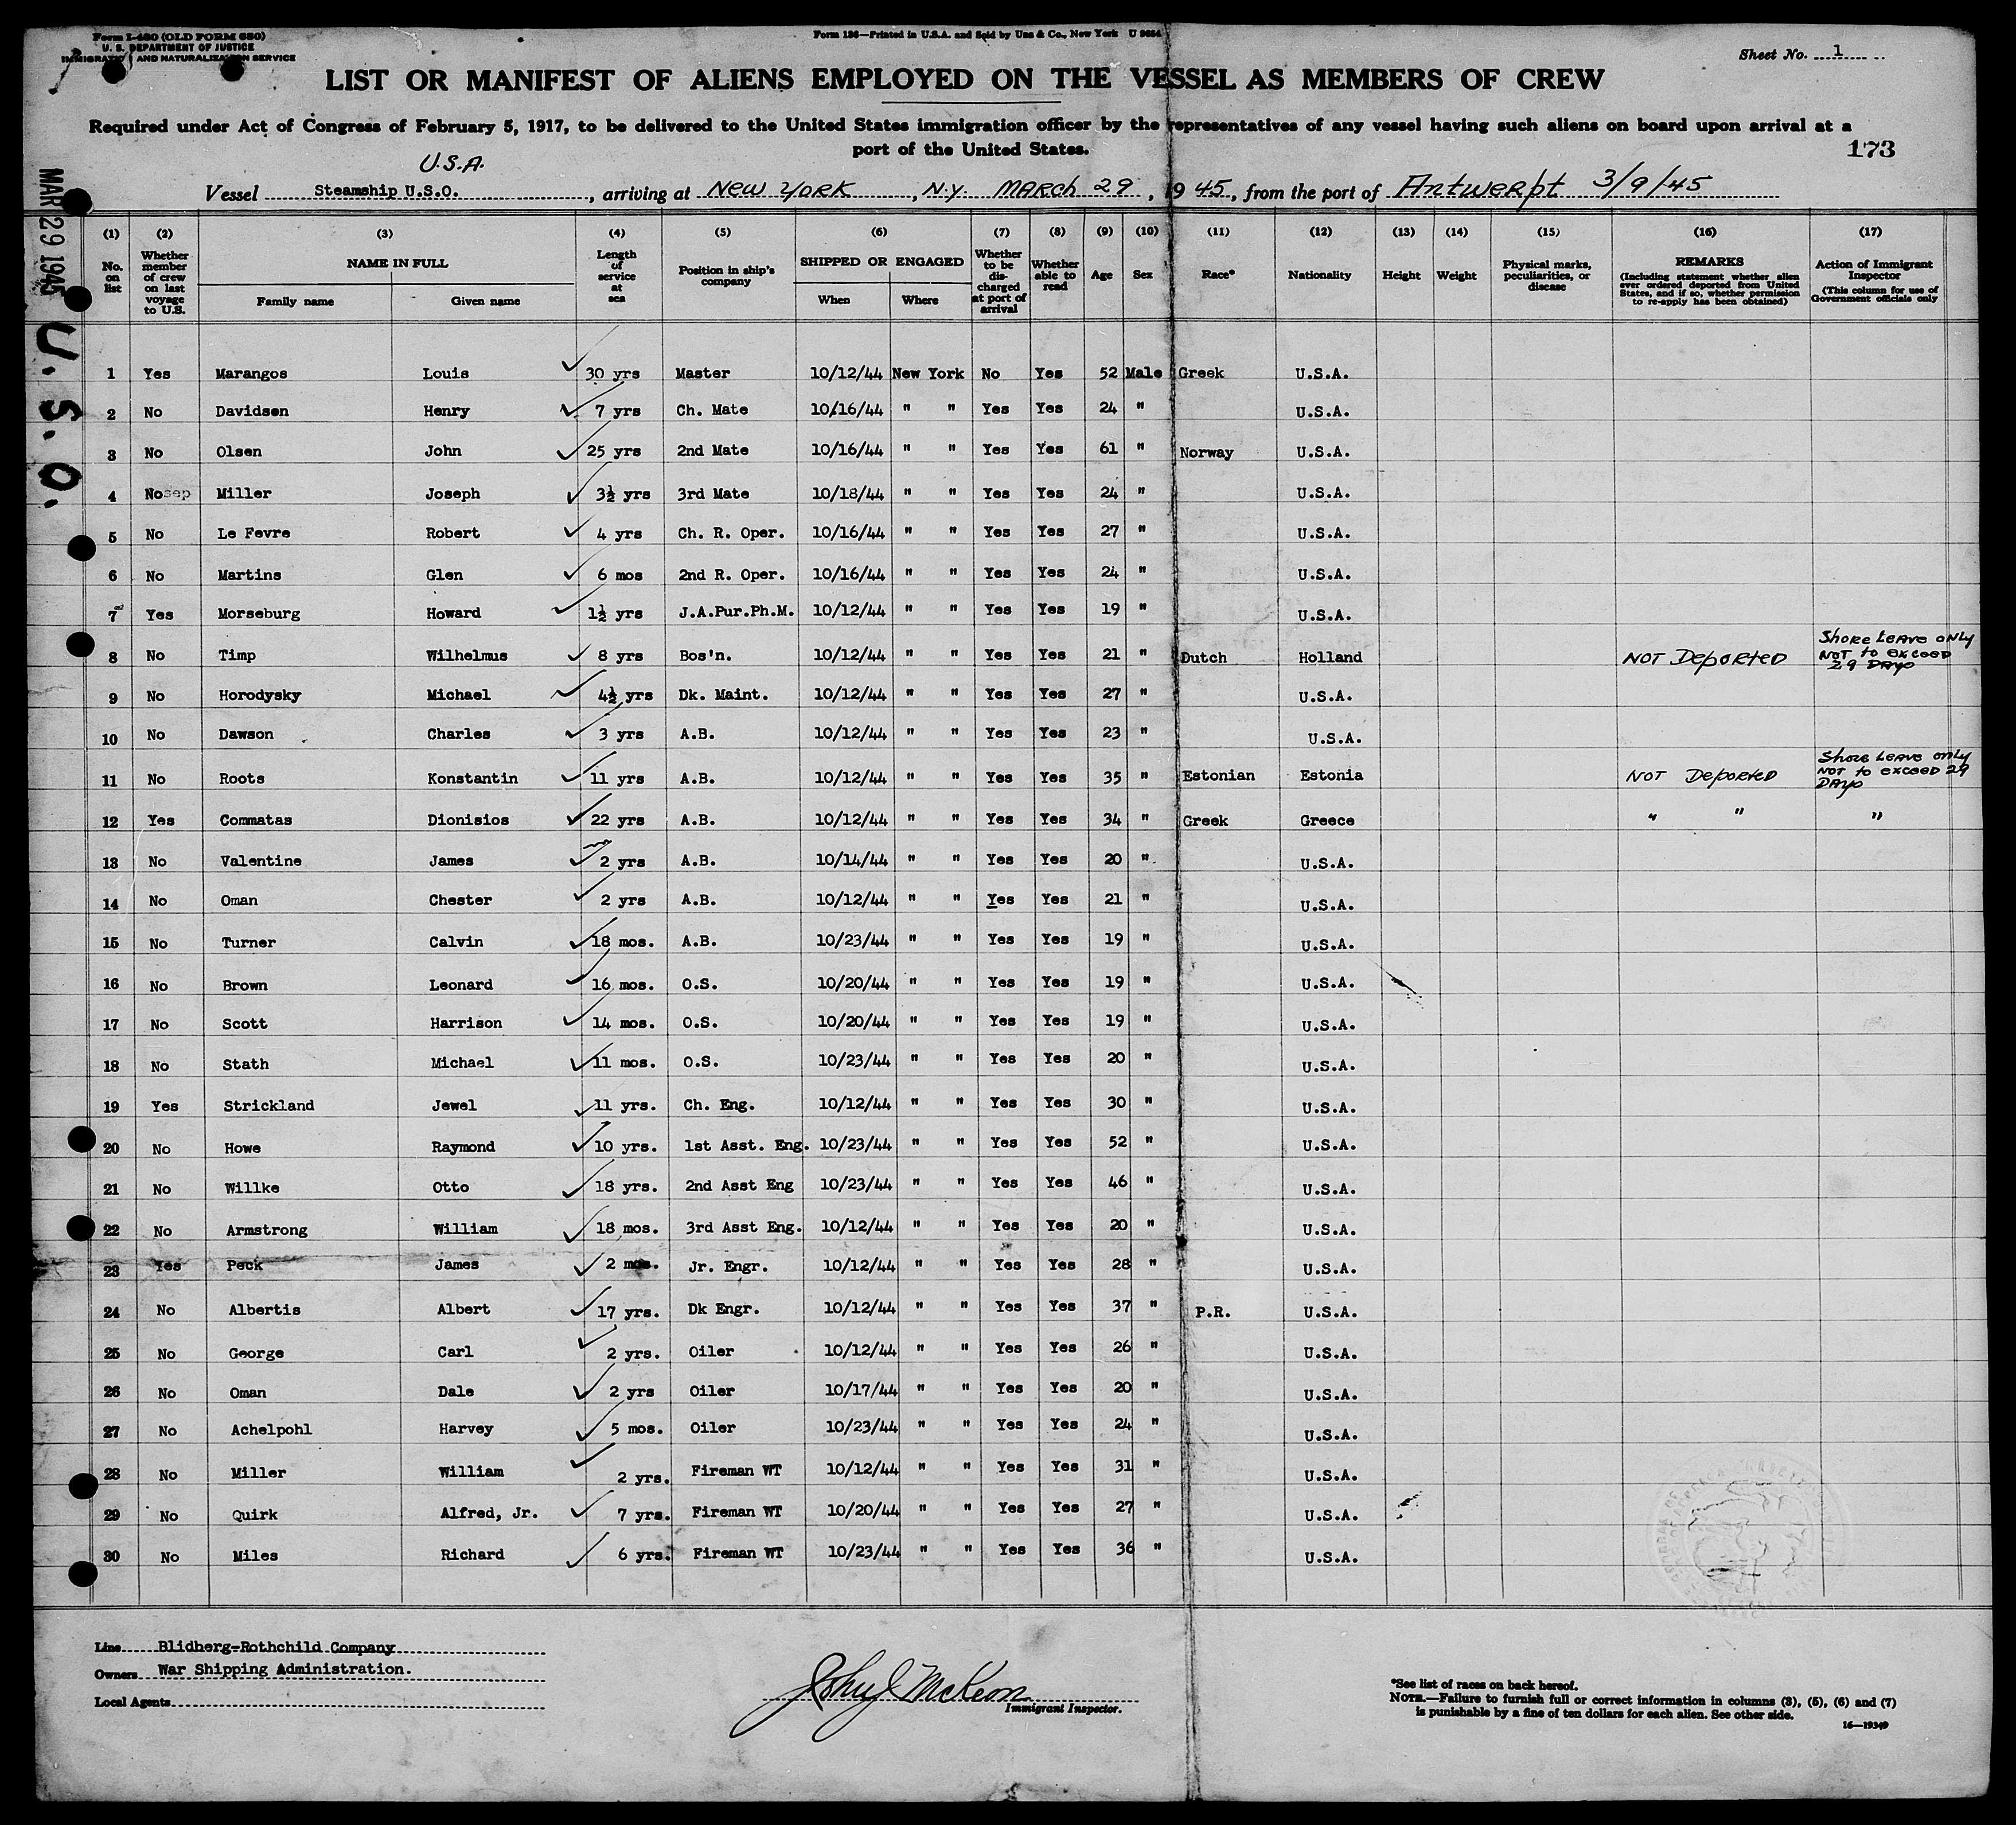 Form I-480 (OLD FORM 680)
U. S. DEPARTMENT OF JUSTICE
IMMIGRATION AND NATURALIZATION SERVICE
Form 136—Printed in U.S.A. and Sold by Unz & Co., New York U 9654
Sheet No. 1
LIST OR MANIFEST OF ALIENS EMPLOYED ON THE VESSEL AS MEMBERS OF CREW
Required under Act of Congress of February 5, 1917, to be delivered to the United States immigration officer by the representatives of any vessel having such aliens on board upon arrival at a
port of the United States.
173
U.S.A.
Vessel Steamship U.S.O., arriving at New York, N.Y. March 29, 1945, from the port of Antwerpt 3/9/45
MAR 29 1945
U. S. O.
(1) (2) (3) (4) (5) (6) (7) (8) (9) (10) (11) (12) (13) (14) (15) (16) (17)
No. on list
Whether member of crew on last voyage to U.S.
NAME IN FULL
Family name Given name
Length of service at sea
Position in ship's company
SHIPPED OR ENGAGED
When Where
Whether to be discharged at port of arrival
Whether able to read
Age
Sex
Race*
Nationality
Height
Weight
Physical marks, peculiarities, or disease
REMARKS
(Including statement whether alien ever ordered deported from United States, and if so, whether permission to re-apply has been obtained)
Action of Immigrant Inspector
(This column for use of Government officials only
1 Yes Marangos Louis 30 yrs Master 10/12/44 New York No Yes 52 Male Greek U.S.A.
2 No Davidsen Henry 7 yrs Ch. Mate 10/16/44 " " Yes Yes 24 " U.S.A.
3 No Olsen John 25 yrs 2nd Mate 10/16/44 " " Yes Yes 61 " Norway U.S.A.
4 No sep Miller Joseph 3½ yrs 3rd Mate 10/18/44 " " Yes Yes 24 " U.S.A.
5 No Le Fevre Robert 4 yrs Ch. R. Oper. 10/16/44 " " Yes Yes 27 " U.S.A.
6 No Martins Glen 6 mos 2nd R. Oper. 10/16/44 " " Yes Yes 24 " U.S.A.
7 Yes Morseburg Howard 1½ yrs J.A.Pur.Ph.M. 10/12/44 " " Yes Yes 19 " U.S.A.
8 No Timp Wilhelmus 8 yrs Bos'n. 10/12/44 " " Yes Yes 21 " Dutch Holland NOT Deported Shore Leave only NOT to exceed 29 Days
9 No Horodysky Michael 4½ yrs Dk. Maint. 10/12/44 " " Yes Yes 27 " U.S.A.
10 No Dawson Charles 3 yrs A.B. 10/12/44 " " Yes Yes 23 " U.S.A.
11 No Roots Konstantin 11 yrs A.B. 10/12/44 " " Yes Yes 35 " Estonian Estonia NOT Deported Shore Leave only NOT to exceed 29 Days
12 Yes Commatas Dionisios 22 yrs A.B. 10/12/44 " " Yes Yes 34 " Greek Greece " " "
13 No Valentine James 2 yrs A.B. 10/14/44 " " Yes Yes 20 " U.S.A.
14 No Oman Chester 2 yrs A.B. 10/12/44 " " Yes Yes 21 " U.S.A.
15 No Turner Calvin 18 mos. A.B. 10/23/44 " " Yes Yes 19 " U.S.A.
16 No Brown Leonard 16 mos. O.S. 10/20/44 " " Yes Yes 19 " U.S.A.
17 No Scott Harrison 14 mos. O.S. 10/20/44 " " Yes Yes 19 " U.S.A.
18 No Stath Michael 11 mos. O.S. 10/23/44 " " Yes Yes 20 " U.S.A.
19 Yes Strickland Jewel 11 yrs. Ch. Eng. 10/12/44 " " Yes Yes 30 " U.S.A.
20 No Howe Raymond 10 yrs. 1st Asst. Eng. 10/23/44 " " Yes Yes 52 " U.S.A.
21 No Willke Otto 18 yrs. 2nd Asst Eng 10/23/44 " " Yes Yes 46 " U.S.A.
22 No Armstrong William 18 mos. 3rd Asst Eng. 10/12/44 " " Yes Yes 20 " U.S.A.
23 Yes Peck James 2 mos. Jr. Engr. 10/12/44 " " Yes Yes 28 " U.S.A.
24 No Albertis Albert 17 yrs. Dk Engr. 10/12/44 " " Yes Yes 37 " P.R. U.S.A.
25 No George Carl 2 yrs. Oiler 10/12/44 " " Yes Yes 26 " U.S.A.
26 No Oman Dale 2 yrs Oiler 10/17/44 " " Yes Yes 20 " U.S.A.
27 No Achelpohl Harvey 5 mos. Oiler 10/23/44 " " Yes Yes 24 " U.S.A.
28 No Miller William 2 yrs. Fireman WT 10/12/44 " " Yes Yes 31 " U.S.A.
29 No Quirk Alfred, Jr. 7 yrs. Fireman WT 10/20/44 " " Yes Yes 27 " U.S.A.
30 No Miles Richard 6 yrs. Fireman WT 10/23/44 " " Yes Yes 36 " U.S.A.
Line Blidberg-Rothchild Company
Owners War Shipping Administration.
Local Agents
John J McKeon
Immigrant Inspector.
*See list of races on back hereof.
NOTE.—Failure to furnish full or correct information in columns (3), (5), (6) and (7)
is punishable by a fine of ten dollars for each alien. See other side.
16—19349